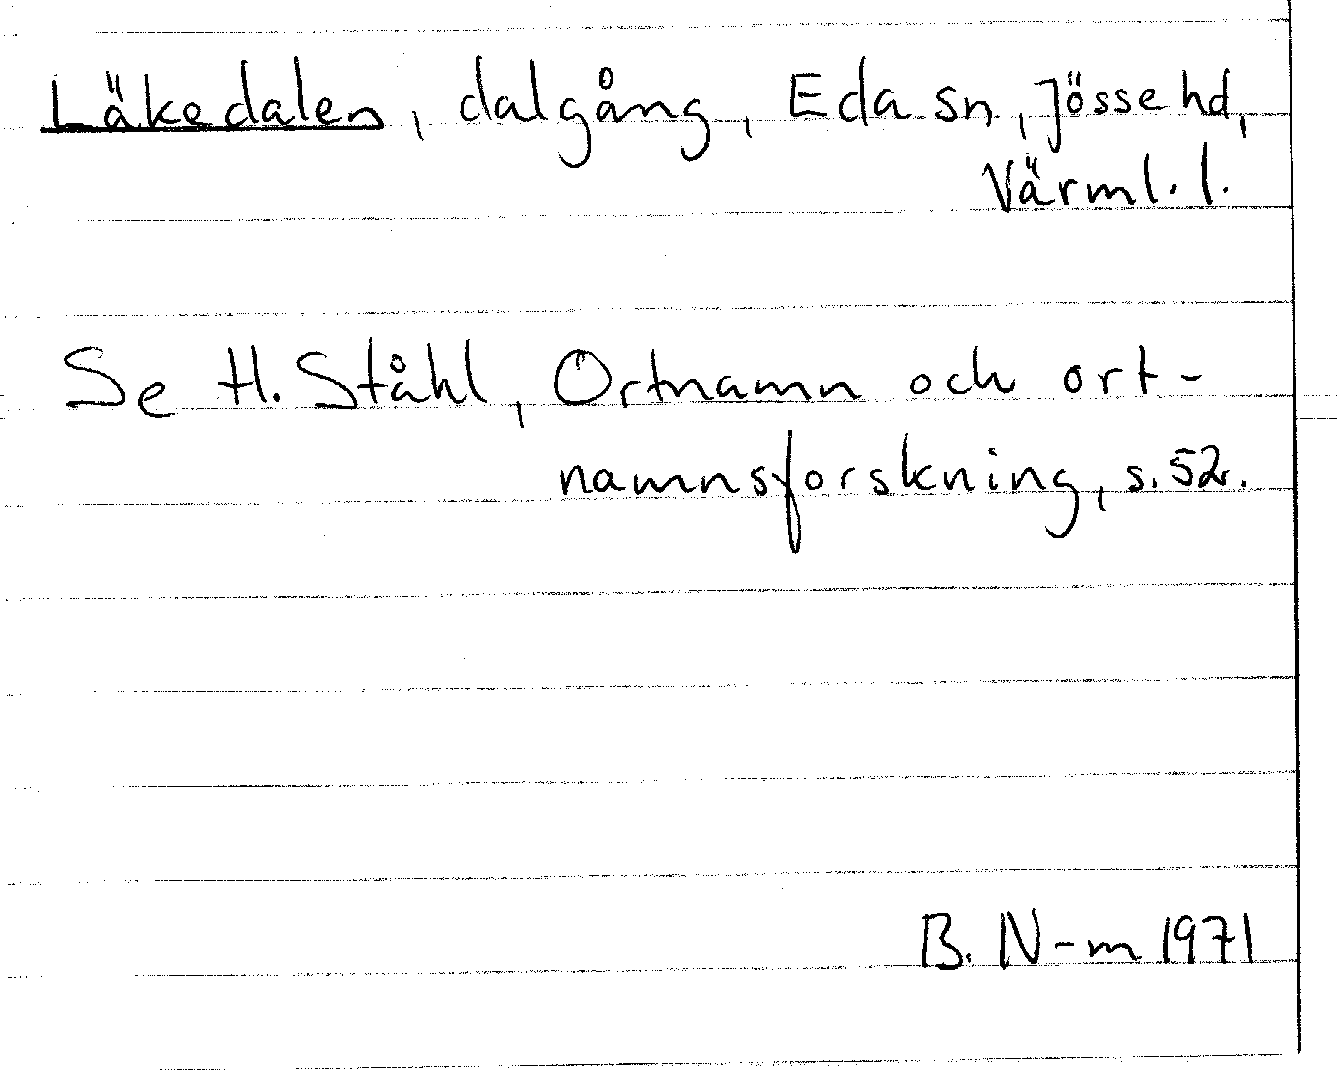 Läkedalen, dalgång, Eda sn, Jösse hd,
Värml. l.
Se H. Ståhl, Ortnamn och ort-
namnsforskning, s. 52.
B. N-m 1971